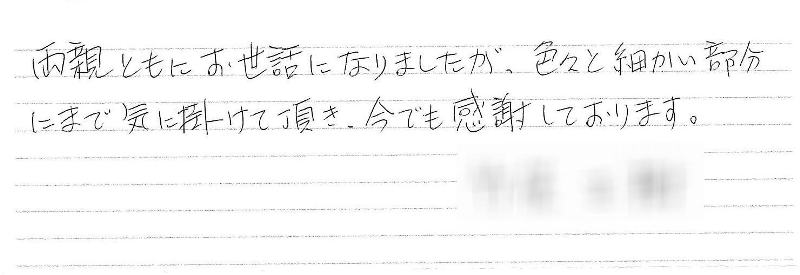 両親ともにお世話になりましたが、色々と細かい部分
にまで気に掛けて頂き、今でも感謝しております。